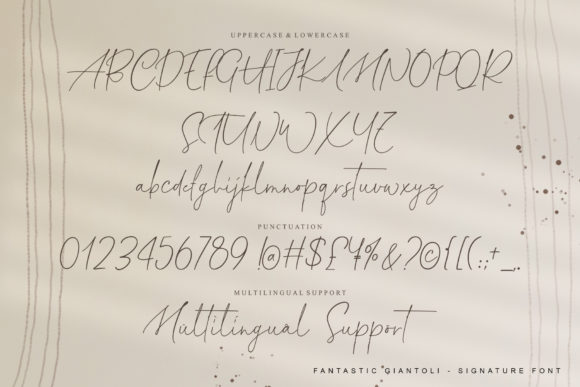 UPPERCASE & LOWERCASE
ABCDEFGHIJKLMNOPQR
STUVWXYZ
abcdefghijklmnopqrstuvwxyz
PUNCTUATION
0123456789 !@#$£¥%&?©{[(:;+_,.
MULTILINGUAL SUPPORT
Multilingual Support
FANTASTIC GIANTOLI - SIGNATURE FONT